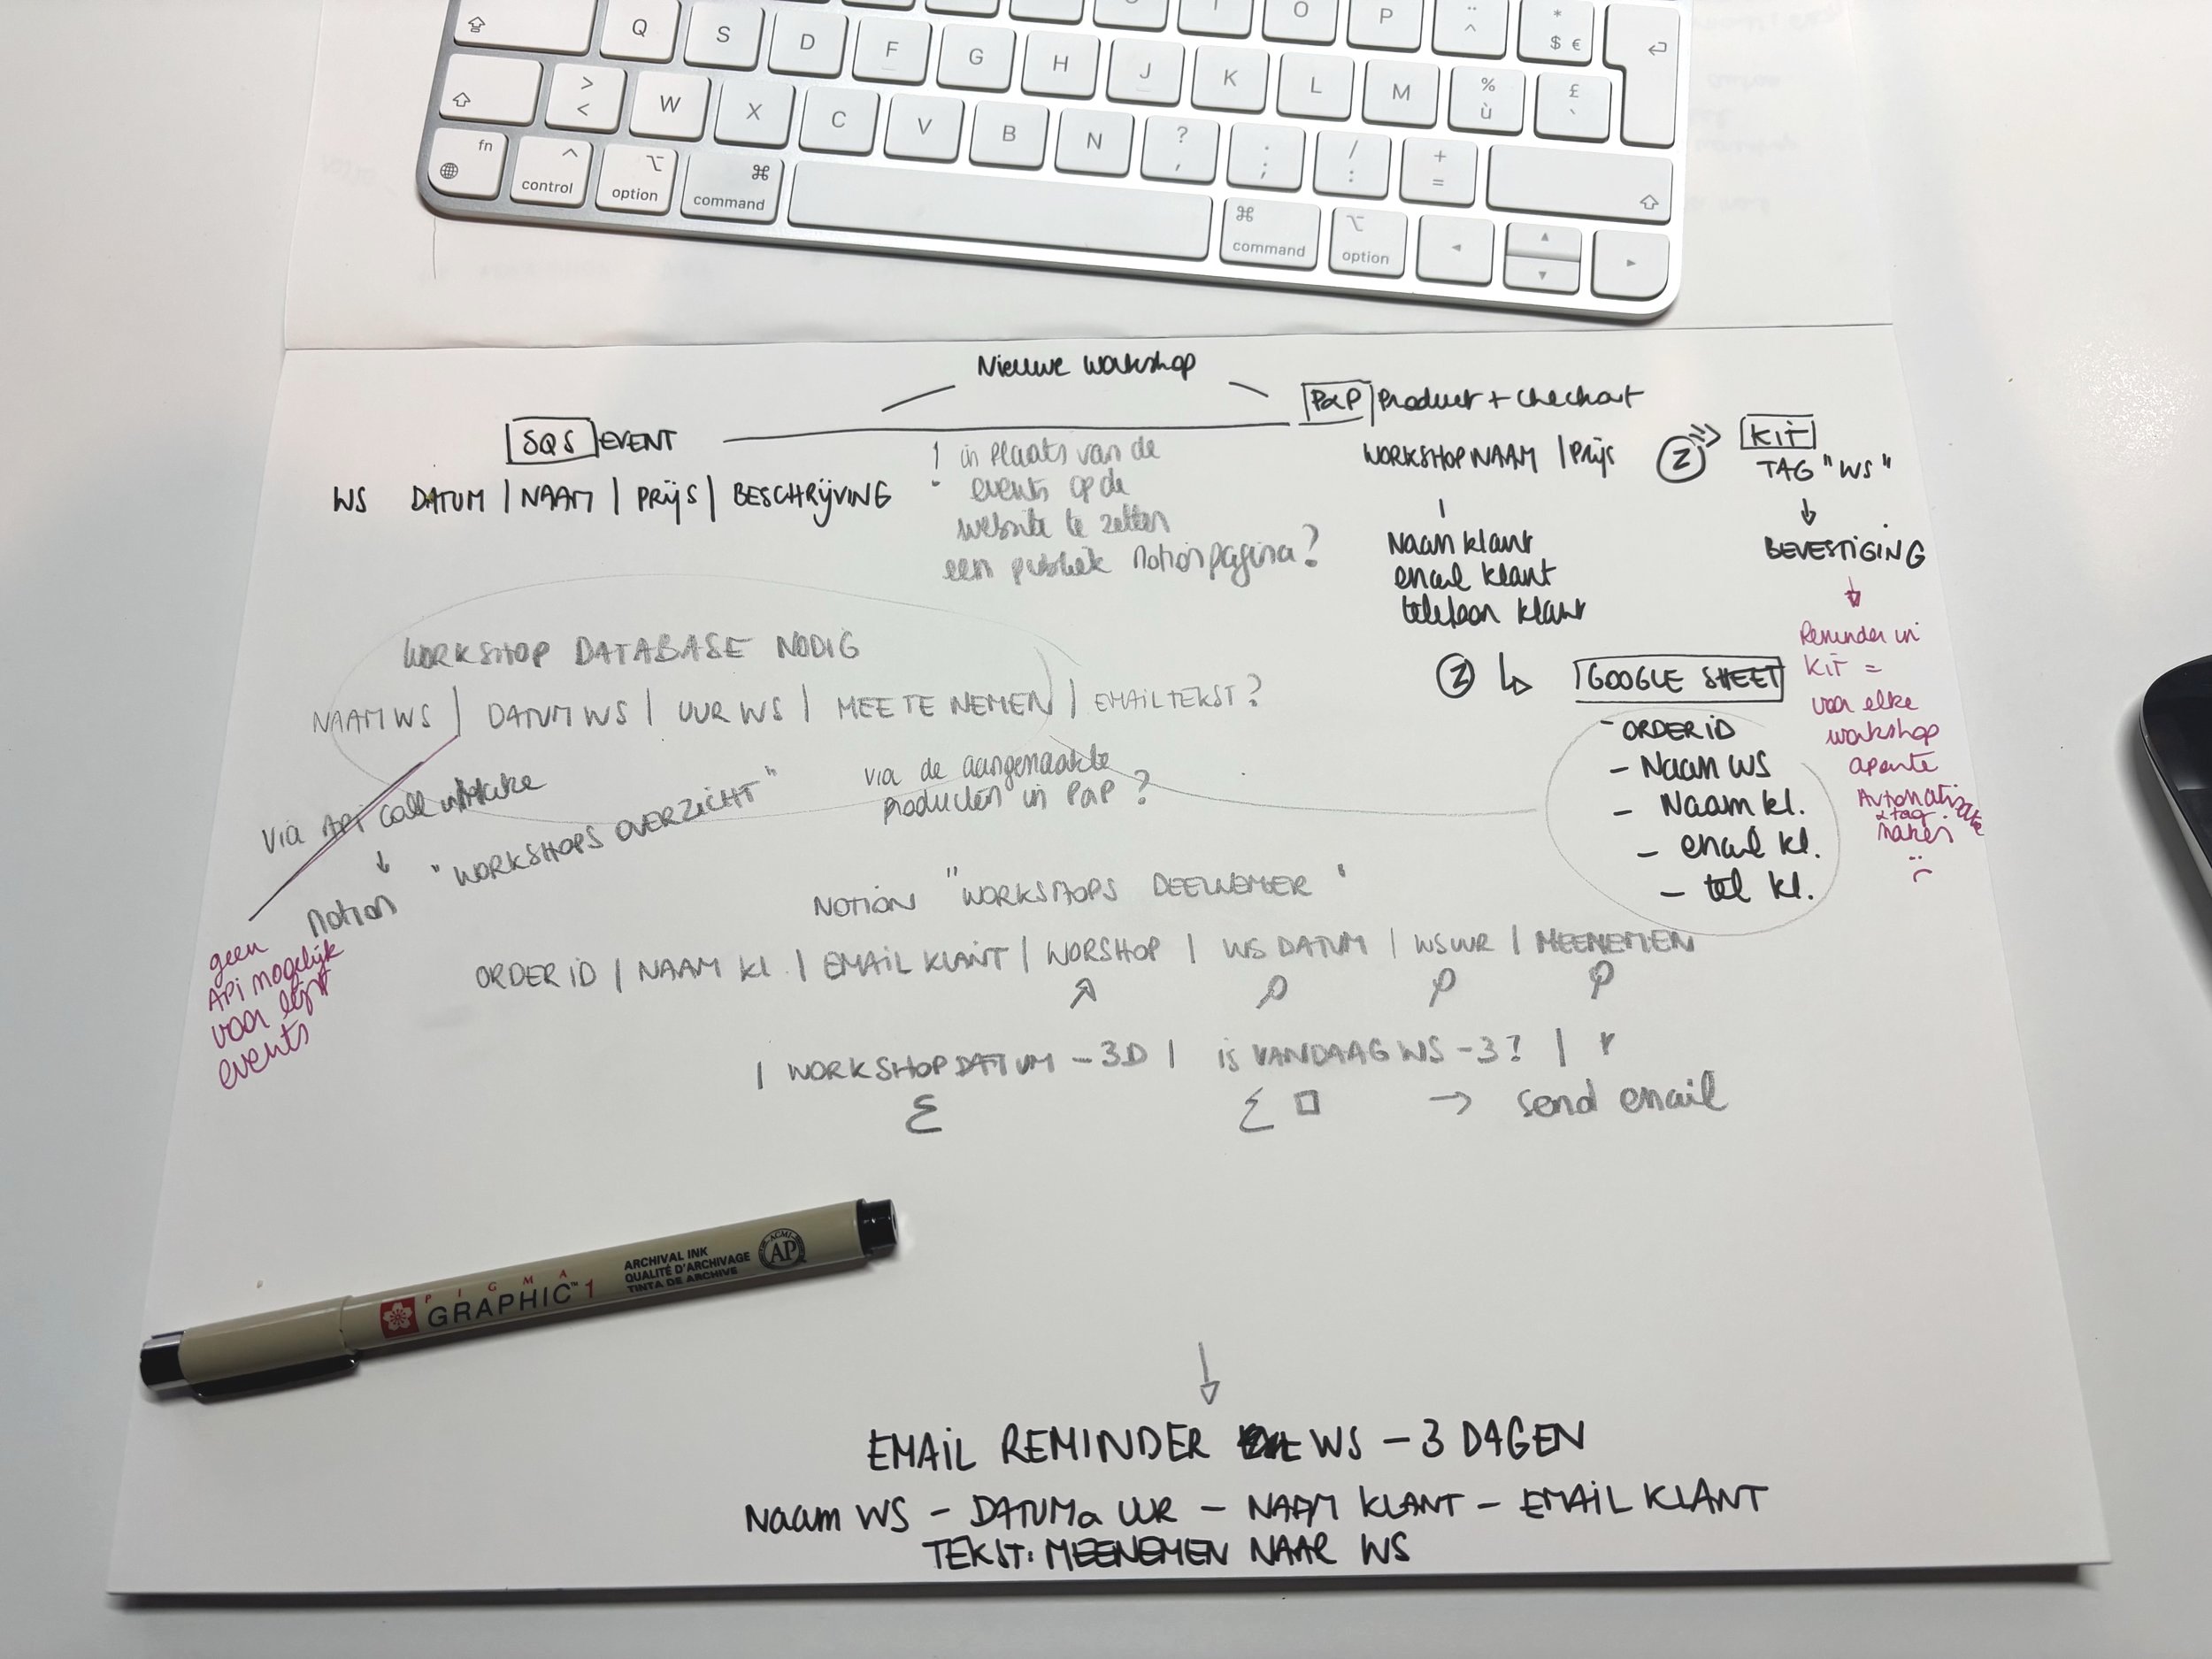 O P ¨ ^ * $ €
Q S D F G H J K L M % ù £ `
> < W X C V B N ? , . ; / : + =
fn control option command command option
Nieuwe workshop
SQS EVENT
WS DATUM | NAAM | PRIJS | BESCHRIJVING
! in plaats van de
events op de
website te zetten
een publiek Notion pagina?
P&P Product + checkout
WORKSHOPNAAM | Prijs
Naam klant
email klant
telefoon klant
Z
KIT
TAG "WS"
BEVESTIGING
Reminder in
KIT =
voor elke
workshop
aparte
Automatisatie
& tag
maken
:(
Z
GOOGLE SHEET
- ORDER ID
- Naam WS
- Naam kl.
- email kl.
- tel kl.
WORKSHOP DATABASE NODIG
NAAM WS | DATUM WS | UUR WS | MEE TE NEMEN | EMAIL TEKST?
via API call
via de aangemaakte
producten in P&P?
Notion "WORKSHOPS OVERZICHT"
geen
API mogelijk
voor lijst
events
NOTION "WORKSHOPS DEELNEMER"
ORDER ID | NAAM Kl. | EMAIL KLANT | WORSHOP | WS DATUM | WS UUR | MEENEMEN
| WORKSHOPDATUM - 3D | is VANDAAG WS -3? |
Σ Σ □ → send email
PIGMA
GRAPHIC™ 1
ARCHIVAL INK
QUALITÉ D'ARCHIVAGE
TINTA DE ARCHIVE
ACMI
AP
EMAIL REMINDER WS - 3 DAGEN
Naam WS - DATUM & UUR - NAAM KLANT - EMAIL KLANT
TEKST: MEENEMEN NAAR WS